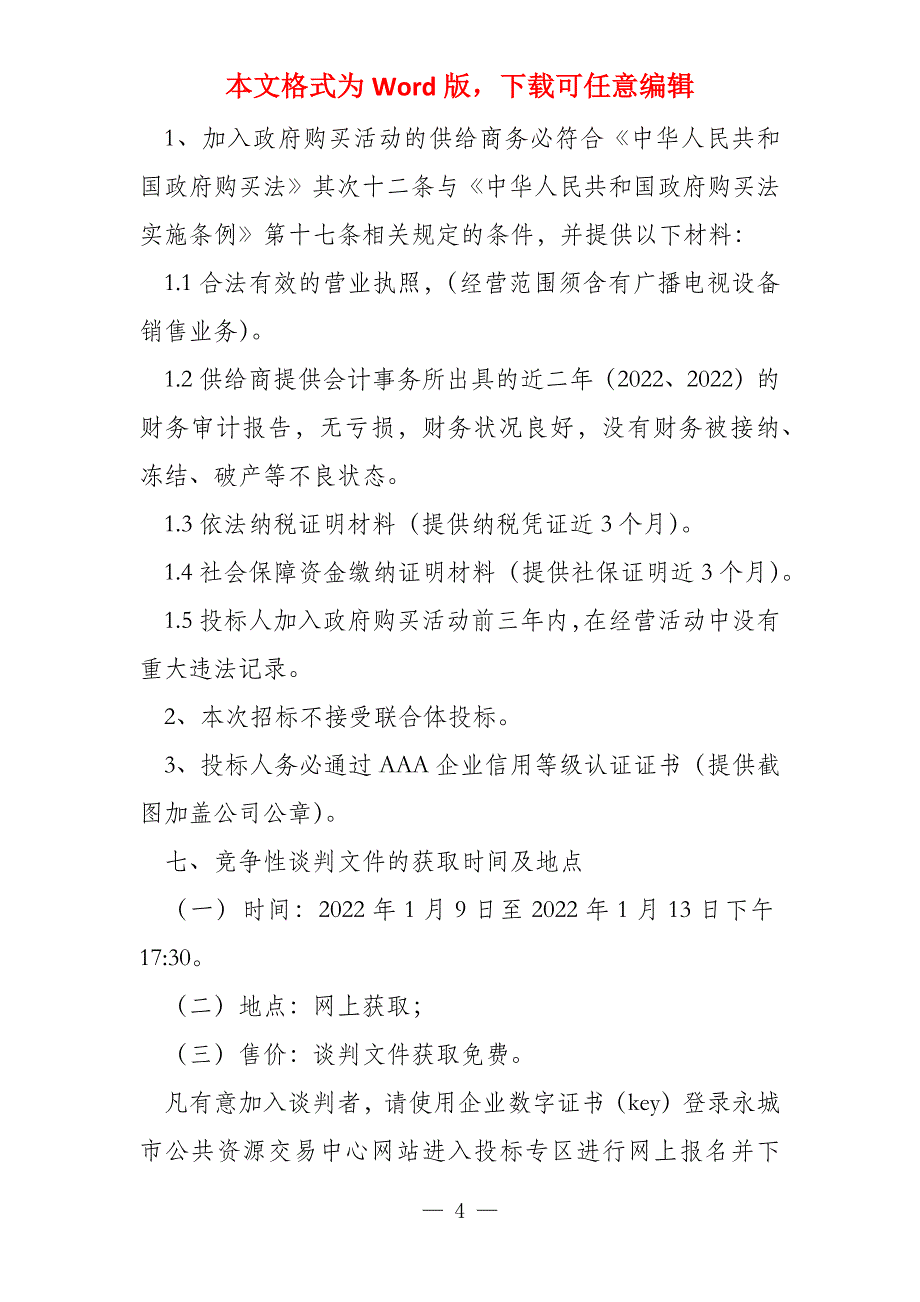 本文格式为 Word 版，下载可任意编辑
1、加入政府购买活动的供给商务必符合《中华人民共和
国政府购买法》其次十二条与《中华人民共和国政府购买法
实施条例》第十七条相关规定的条件，并提供以下材料：
1.1 合法有效的营业执照，（经营范围须含有广播电视设备
销售业务）。
1.2 供给商提供会计事务所出具的近二年（2022、2022）的
财务审计报告，无亏损，财务状况良好，没有财务被接纳、
冻结、破产等不良状态。
1.3 依法纳税证明材料（提供纳税凭证近 3 个月）。
1.4 社会保障资金缴纳证明材料（提供社保证明近 3 个月）。
1.5 投标人加入政府购买活动前三年内，在经营活动中没有
重大违法记录。
2、本次招标不接受联合体投标。
3、投标人务必通过 AAA 企业信用等级认证证书（提供截
图加盖公司公章）。
七、竞争性谈判文件的获取时间及地点
（一）时间：2022 年 1 月 9 日至 2022 年 1 月 13 日下午
17:30。
（二）地点：网上获取；
（三）售价：谈判文件获取免费。
凡有意加入谈判者，请使用企业数字证书（key）登录永城
市公共资源交易中心网站进入投标专区进行网上报名并下
— 4 —